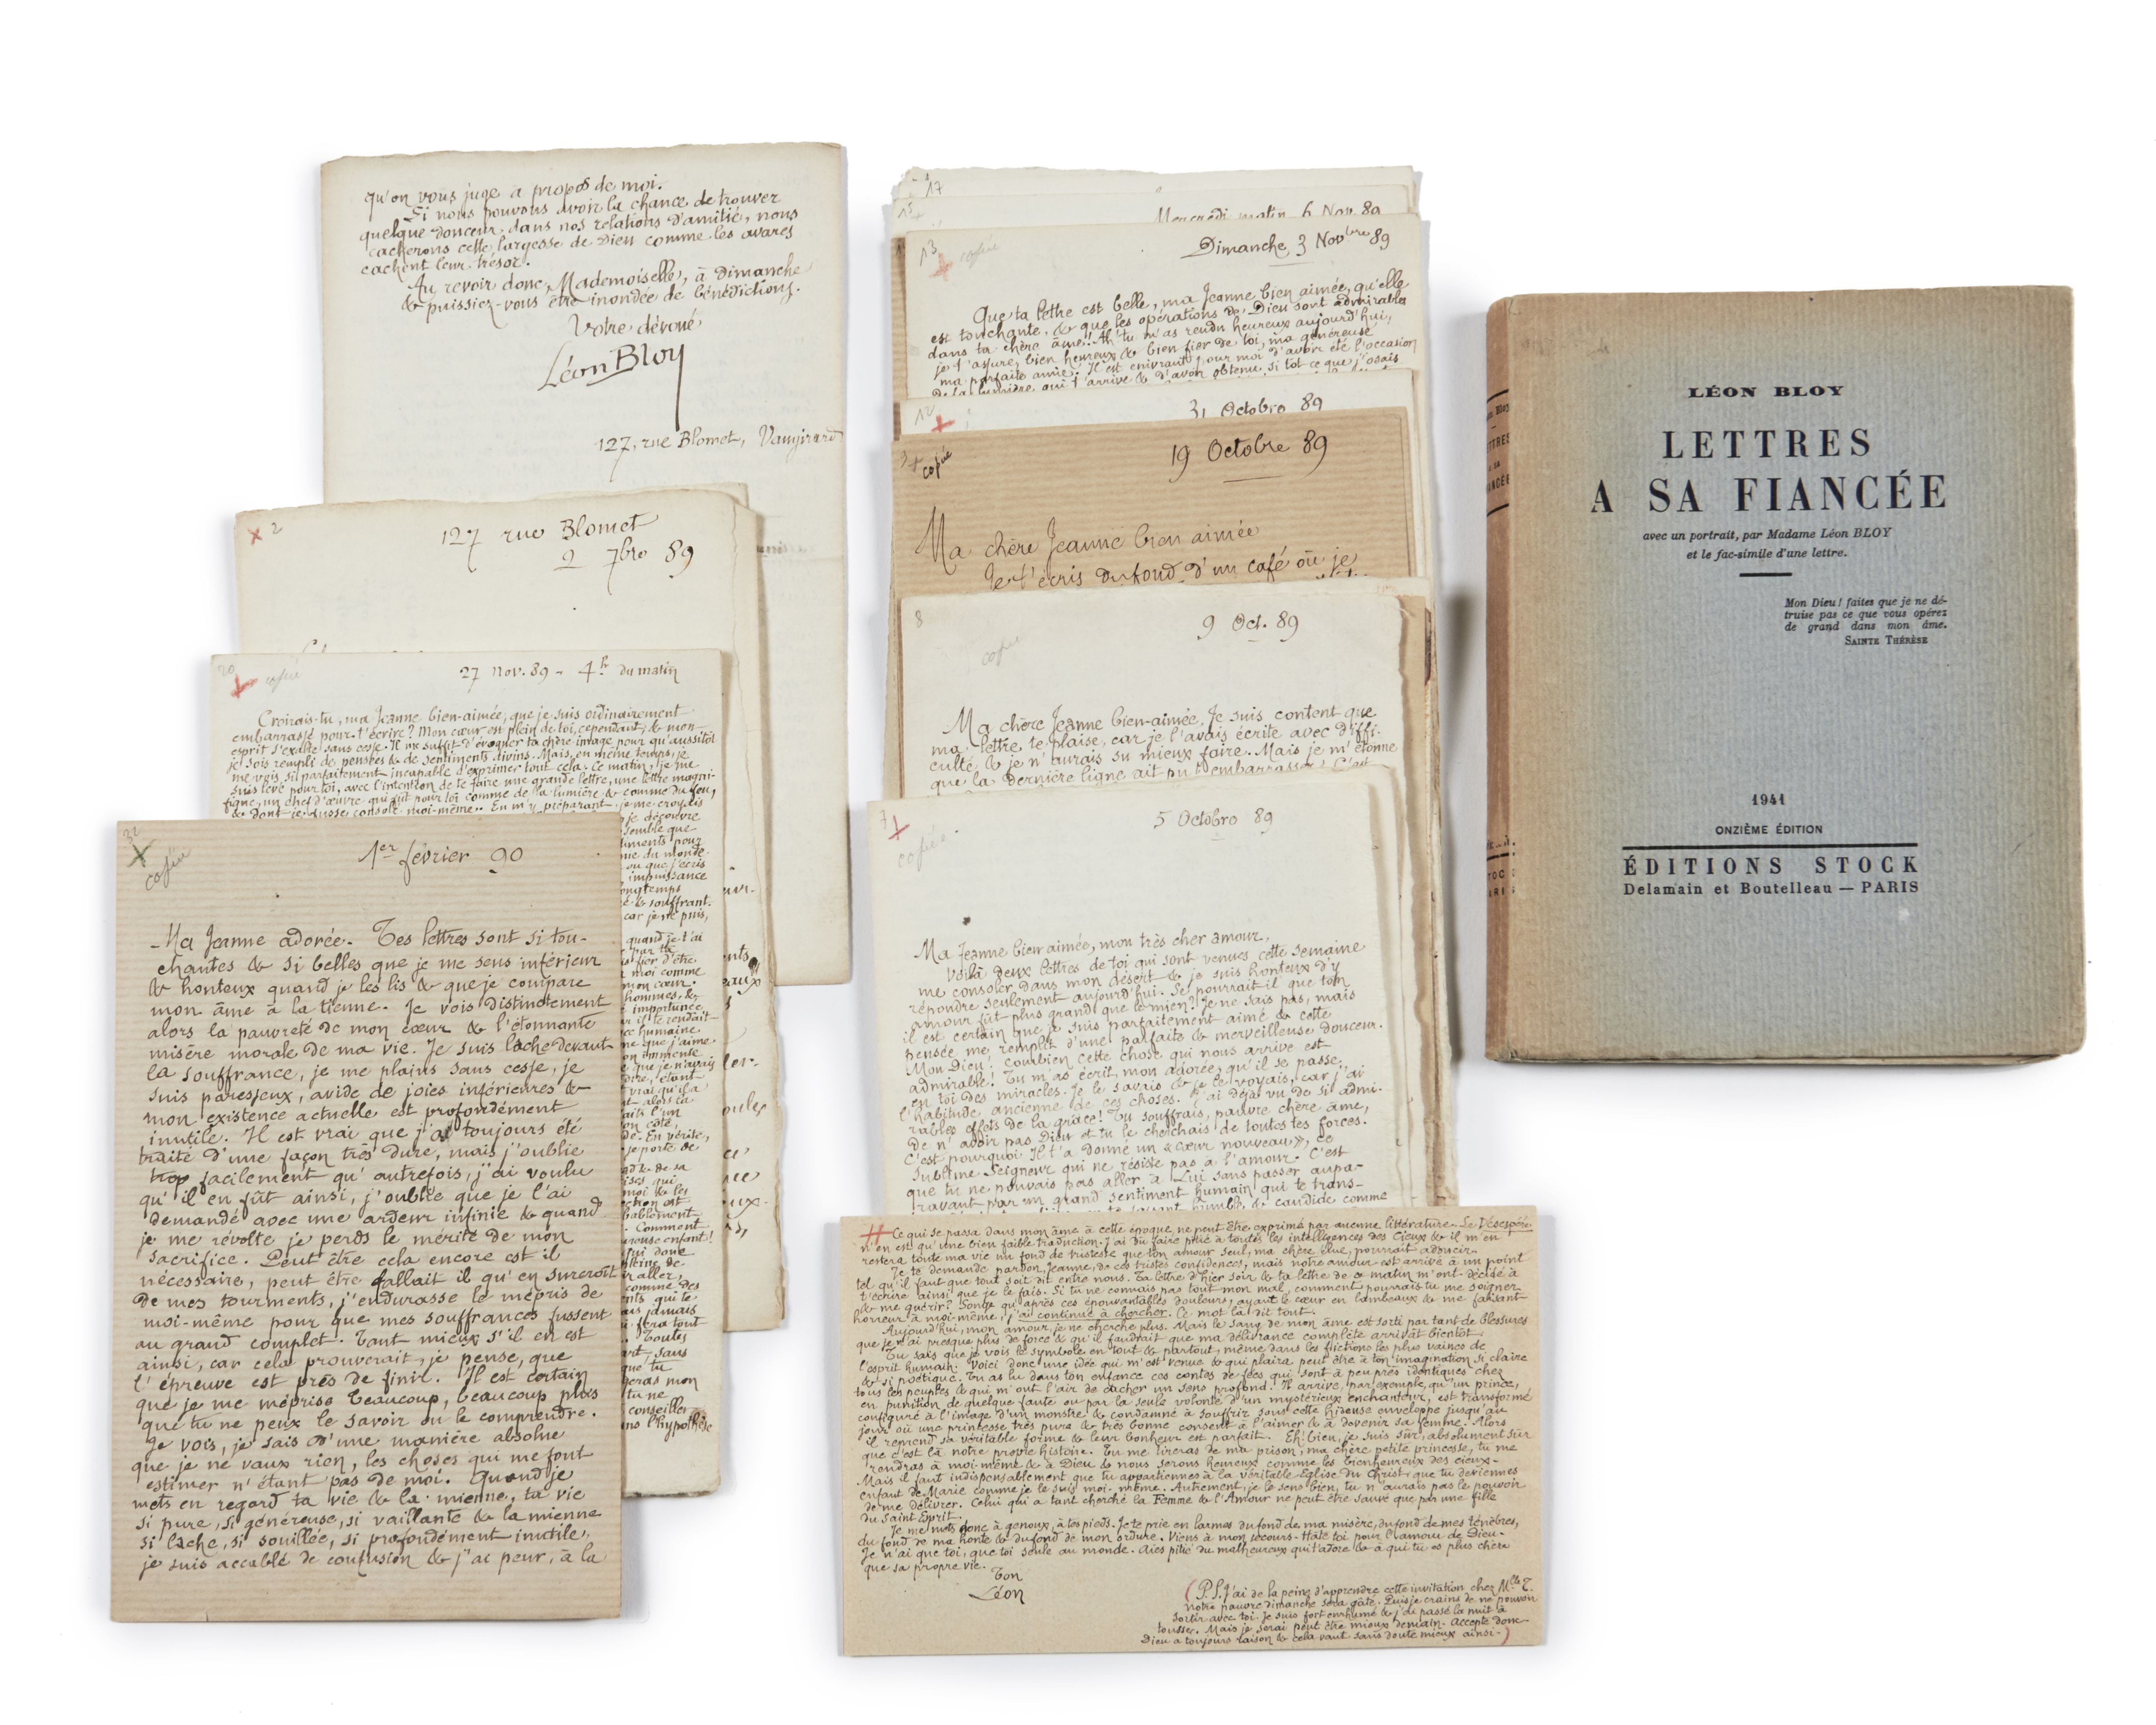 qu'on vous juge à propos de moi.
Si nous pouvons avoir la chance de trouver
quelque douceur dans nos relations d'amitié, nous
cacherons cette largesse de Dieu comme les avares
cachent leur trésor.
Au revoir donc, Mademoiselle, à Dimanche
& puissiez-vous être inondée de bénédictions.
Votre dévoué
Léon Bloy
127, rue Blomet, Vaugirard
2
127 rue Blomet
2 7bre 89
20
copié
27 Nov. 89 - 4h du matin
Croirais-tu, ma Jeanne bien-aimée, que je suis ordinairement
embarrassé pour t'écrire? Mon cœur est plein de toi, cependant, & mon
esprit s'exalte sans cesse. Il me suffit d'évoquer ta chère image pour qu'aussitôt
je sois rempli de pensées & de sentiments divins. Mais, en même temps, je
me vois si parfaitement incapable d'exprimer tout cela. Ce matin, je me
suis levé pour toi, avec l'intention de te faire une grande lettre, une lettre magni-
fique, un chef d'œuvre qui fût pour toi comme de la lumière & comme du feu,
& dont je fusse consolé moi-même. En m'y préparant je me croyais
je découvre
semble que
timents pour
que du monde
ou que j'écris
impuissance
longtemps
& souffrant.
car je ne puis,
quand je t'ai
par ta
fier d'être
moi comme
mon cœur.
hommes, &
importance
humaine
que j'aime
immense
que je n'avais
En vérité,
je porte de
& de sa
qui
moi & les
Comment
enfant!
donc
aller,
comme des
qui te
jamais
sera tout
Toutes
sans
que tu
mon
tu ne
conseilles
l'hypothèse
32
copié
1er février 90
Ma Jeanne adorée. Tes lettres sont si tou-
chantes & si belles que je me sens inférieur
& honteux quand je les lis & que je compare
mon âme à la tienne. Je vois distinctement
alors la pauvreté de mon cœur & l'étonnante
misère morale de ma vie. Je suis lâche devant
la souffrance, je me plains sans cesse, je
suis paresseux, avide de joies inférieures &
mon existence actuelle est profondément
inutile. Il est vrai que j'ai toujours été
traité d'une façon très dure, mais j'oublie
trop facilement qu'autrefois, j'ai voulu
qu'il en fût ainsi, j'oublie que je l'ai
demandé avec une ardeur infinie & quand
je me révolte je perds le mérite de mon
sacrifice. Peut être cela encore est il
nécessaire, peut être fallait il qu'en surcroît
de mes tourments, j'endurasse le mépris de
moi-même pour que mes souffrances fussent
au grand complet. Tant mieux s'il en est
ainsi, car cela prouverait, je pense, que
l'épreuve est près de finir. Il est certain
que je me méprise beaucoup, beaucoup plus
que tu ne peux le savoir ou le comprendre.
Je vois, je sais d'une manière absolue
que je ne vaux rien, les choses qui me font
estimer n'étant pas de moi. Quand je
mets en regard ta vie & la mienne, ta vie
si pure, si généreuse, si vaillante & la mienne
si lâche, si souillée, si profondément inutile,
je suis accablé de confusion & j'ai peur, à la
17
15
Mercredi matin 6 Nov. 89
13
copié
Dimanche 3 Novbre 89
Que ta lettre est belle, ma Jeanne bien aimée, qu'elle
est touchante, & que les opérations de Dieu sont admirables
dans ta chère âme!! Ah! tu m'as rendu heureux aujourd'hui,
je t'assure, bien heureux & bien fier de toi, ma généreuse,
ma parfaite amie. Il est enivrant pour moi d'avoir été l'occasion
de la lumière qui t'arrive & d'avoir obtenu si tôt ce que j'osais
12
31 Octobre 89
copié
19 Octobre 89
Ma chère Jeanne bien aimée
Je t'écris du fond d'un café où je
8
copié
9 Oct. 89
Ma chère Jeanne bien-aimée, Je suis content que
ma lettre te plaise, car je l'avais écrite avec diffi-
culté, & je n'aurais su mieux faire. Mais je m'étonne
que la dernière ligne ait pu t'embarrasser. C'est
7
copiée
5 Octobre 89
Ma Jeanne bien aimée, mon très cher amour,
Voilà deux lettres de toi qui sont venues cette semaine
me consoler dans mon désert & je suis honteux d'y
répondre seulement aujourd'hui. Se pourrait il que ton
amour fût plus grand que le mien? Je ne sais pas, mais
il est certain que je suis parfaitement aimé & cette
pensée me remplit d'une parfaite & merveilleuse douceur.
Mon Dieu! combien cette chose qui nous arrive est
admirable! Tu m'as écrit, mon adorée, qu'il se passe
en toi des miracles. Je le savais & je le voyais, car j'ai
l'habitude ancienne de ces choses. J'ai déjà vu de si admi-
rables effets de la grâce! Tu souffrais, pauvre chère âme,
de n'avoir pas Dieu et tu le cherchais de toutes tes forces.
C'est pourquoi Il t'a donné un «cœur nouveau», ce
Sublime Seigneur qui ne résiste pas à l'amour. C'est
que tu ne pouvais pas aller à Lui sans passer aupa-
ravant par un grand sentiment humain qui te trans-
humble & candide comme
Ce qui se passa dans mon âme à cette époque ne peut être exprimé par aucune littérature. Le Désespéré
n'en est qu'une bien faible traduction. J'ai dû faire pitié à toutes les intelligences des Cieux & il m'en
restera toute ma vie un fond de tristesse que ton amour seul, ma chère élue, pourrait adoucir.
Je te demande pardon, Jeanne, de ces tristes confidences, mais notre amour est arrivé à un point
tel qu'il faut que tout soit dit entre nous. Ta lettre d'hier soir & ta lettre de ce matin m'ont décidé à
t'écrire ainsi que je le fais. Si tu ne connais pas tout mon mal, comment pourrais-tu me soigner
& me guérir? Songe qu'après ces épouvantables douleurs, ayant le cœur en lambeaux & me faisant
horreur à moi-même, j'ai continué à chercher. Ce mot là dit tout.
Aujourd'hui, mon amour, je ne cherche plus. Mais le sang de mon âme est sorti par tant de blessures
que je n'ai presque plus de force & qu'il faudrait que ma délivrance complète arrivât bientôt.
Tu sais que je vois le symbole en tout & partout, même dans les fictions les plus vaines de
l'esprit humain. Voici donc une idée qui m'est venue & qui plaira peut être à ton imagination si claire
& si poétique. Tu as lu dans ton enfance ces contes de fées qui sont à peu près identiques chez
tous les peuples & qui m'ont l'air de cacher un sens profond. Il arrive, par exemple, qu'un prince,
en punition de quelque faute ou par la seule volonté d'un mystérieux enchanteur, est transformé
configuré à l'image d'un monstre & condamné à souffrir sous cette hideuse enveloppe jusqu'au
jour où une princesse très pure & très bonne consent à l'aimer & à devenir sa femme. Alors
il reprend sa véritable forme & leur bonheur est parfait. Eh! bien, je suis sûr, absolument sûr
que c'est là notre propre histoire. Tu me tireras de ma prison, ma chère petite princesse, tu me
rendras à moi-même & à Dieu & nous serons heureux comme les bienheureux des cieux.
Mais il faut indispensablement que tu appartiennes à la véritable Eglise du Christ, que tu deviennes
enfant de Marie comme je le suis moi-même. Autrement, je le sens bien, tu n'aurais pas le pouvoir
de me délivrer. Celui qui a tant cherché la Femme & l'Amour ne peut être sauvé que par une fille
du Saint Esprit.
Je me mets donc à genoux, à tes pieds. Je te prie en larmes du fond de ma misère, du fond de mes ténèbres,
du fond de ma honte & du fond de mon ordure. Viens à mon secours. Hâte toi pour l'amour de Dieu.
Je n'ai que toi, que toi seule au monde. Aies pitié du malheureux qui t'adore & à qui tu es plus chère
que sa propre vie.
Ton
Léon
(P.S. J'ai de la peine d'apprendre cette invitation chez Mlle T.
Notre pauvre dimanche sera gâté. Puis je crains de ne pouvoir
sortir avec toi. Je suis fort enrhumé & j'ai passé la nuit à
tousser. Mais je serai peut être mieux demain. Accepte donc.
Dieu a toujours raison & cela vaut sans doute mieux ainsi.)
LÉON BLOY
LETTRES
A SA FIANCÉE
avec un portrait, par Madame Léon BLOY
et le fac-simile d'une lettre.
Mon Dieu! faites que je ne dé-
truise pas ce que vous opérez
de grand dans mon âme.
SAINTE THÉRÈSE
1941
ONZIÈME ÉDITION
ÉDITIONS STOCK
Delamain et Boutelleau — PARIS